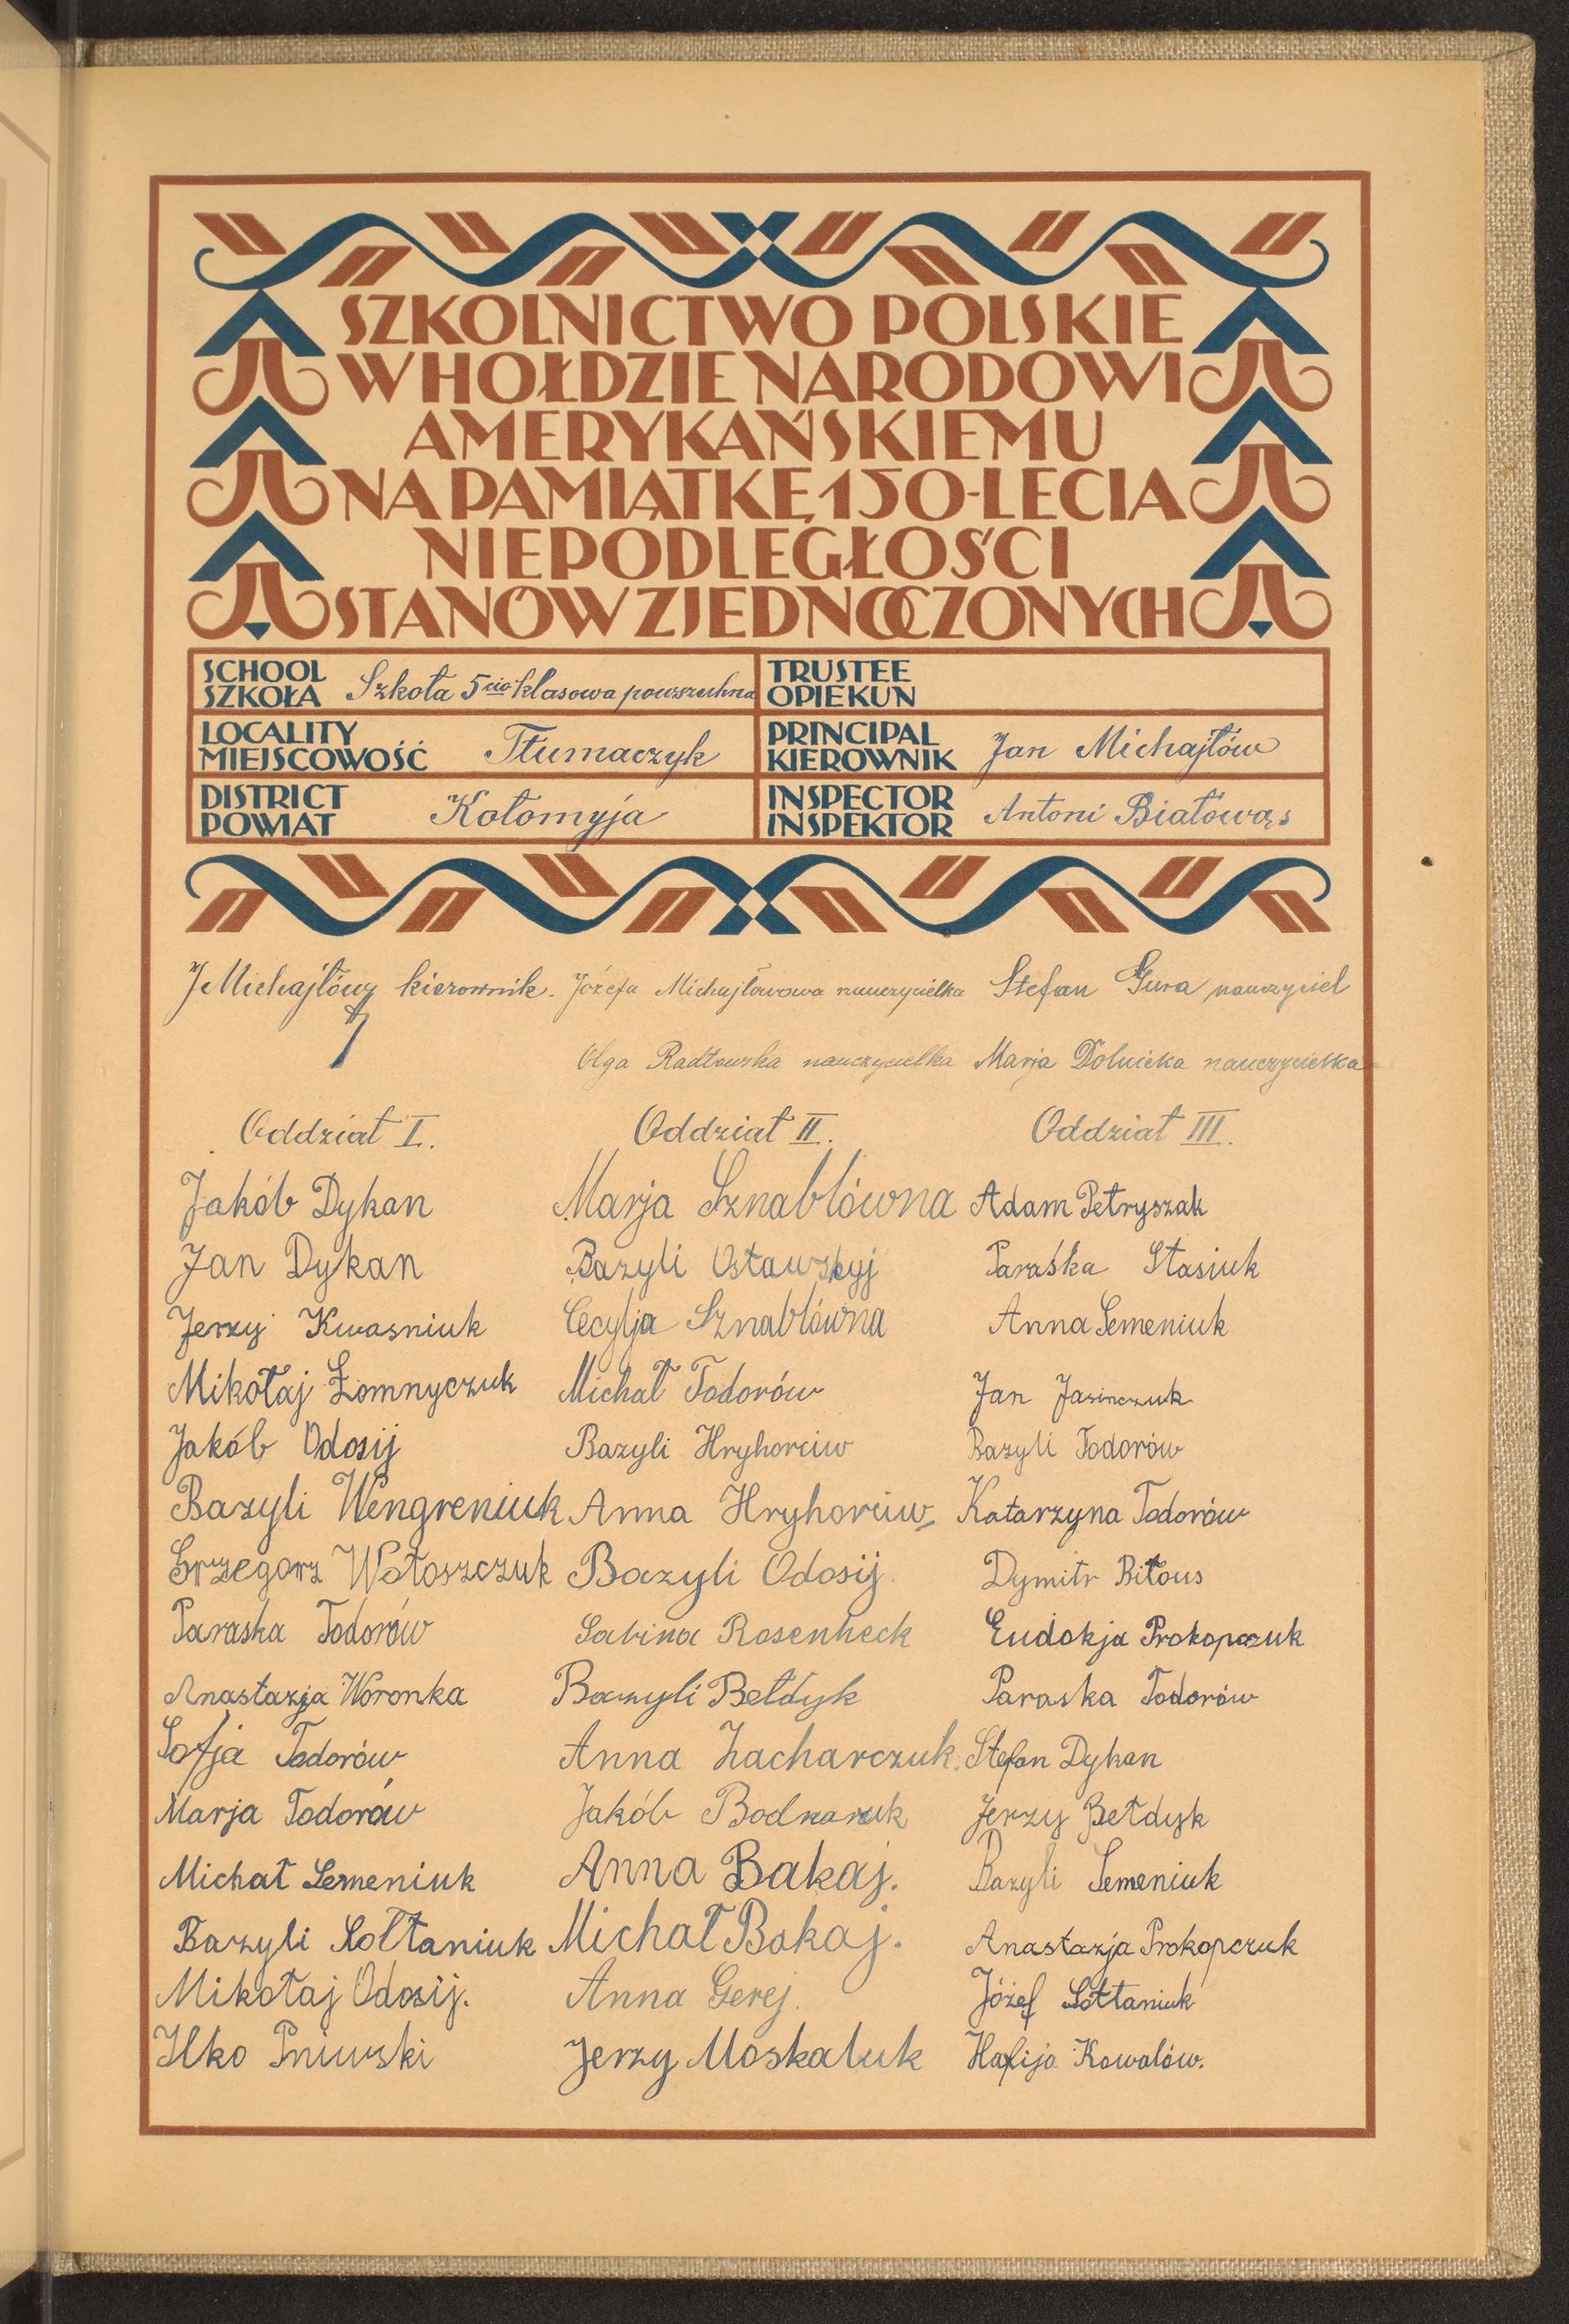 SZKOLNICTWO POLSKIE
W HOŁDZIE NARODOWI
AMERYKAŃSKIEMU
NA PAMIĄTKĘ 150-LECIA
NIEPODLEGŁOŚCI
STANÓW ZJEDNOCZONYCH
SCHOOL
SZKOŁA Szkoła 5cio klasowa powszechna
TRUSTEE
OPIEKUN
LOCALITY
MIEJSCOWOŚĆ Tłumaczyk
PRINCIPAL
KIEROWNIK Jan Michajłów
DISTRICT
POWIAT Kołomyja
INSPECTOR
INSPEKTOR Antoni Białowąs
JMichajłów kierownik. Józefa Michajłowowa nauczycielka Stefan Gura nauczyciel
Olga Radłowska nauczycielka Marja Dolnicka nauczycielka
Oddział I. Oddział II. Oddział III.
Jakób Dykan Marja Sznablówna Adam Petryszak
Jan Dykan Bazyli Ostawskyj Paraśka Stasiuk
Jerzy Kwasniuk Cecylja Sznablówna Anna Semeniuk
Mikołaj Łomnyczuk Michał Todorów Jan Jasinczuk
Jakób Odosij Bazyli Hryhorciw Bazyli Todorów
Bazyli Wengreniuk Anna Hryhorciw Katarzyna Todorów
Grzegorz Wołoszczuk Bazyli Odosij Dymitr Biłous
Paraska Todorów Sabina Rosenheck Eudokja Prokopczuk
Anastazja Woronka Bazyli Bełdyk Paraska Todorów
Sofja Todorów Anna Zacharczuk. Stefan Dykan
Marja Todorów Jakób Bodnaruk Jerzy Bełdyk
Michał Semeniuk Anna Bakaj. Bazyli Semeniuk
Bazyli Sołtaniuk Michał Bakaj. Anastazja Prokopczuk
Mikołaj Odosij. Anna Gerej. Józef Sołtaniuk
Ilko Pniwski Jerzy Moskaluk Hafija Kowalów.